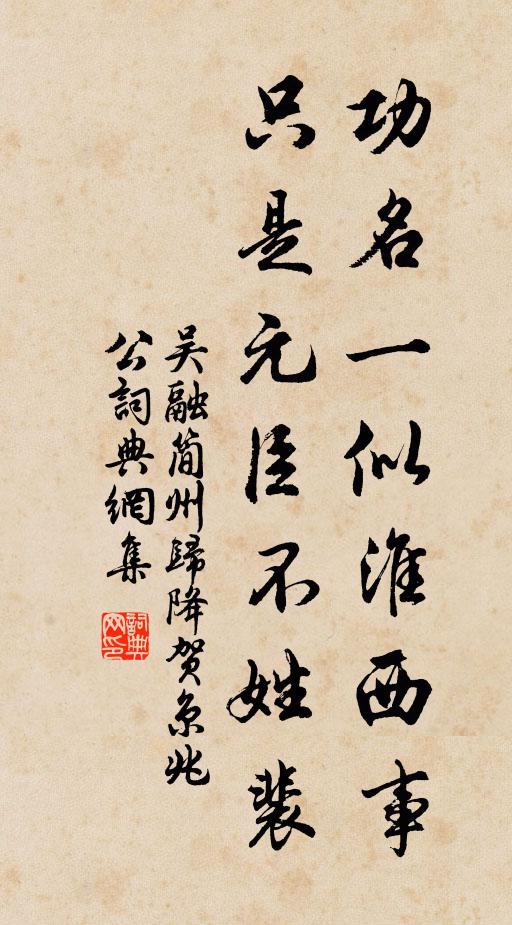 功名一似淮西事
只是元臣不姓裴
吴融简州歸降贺京兆
公詞典網集
詞典网印